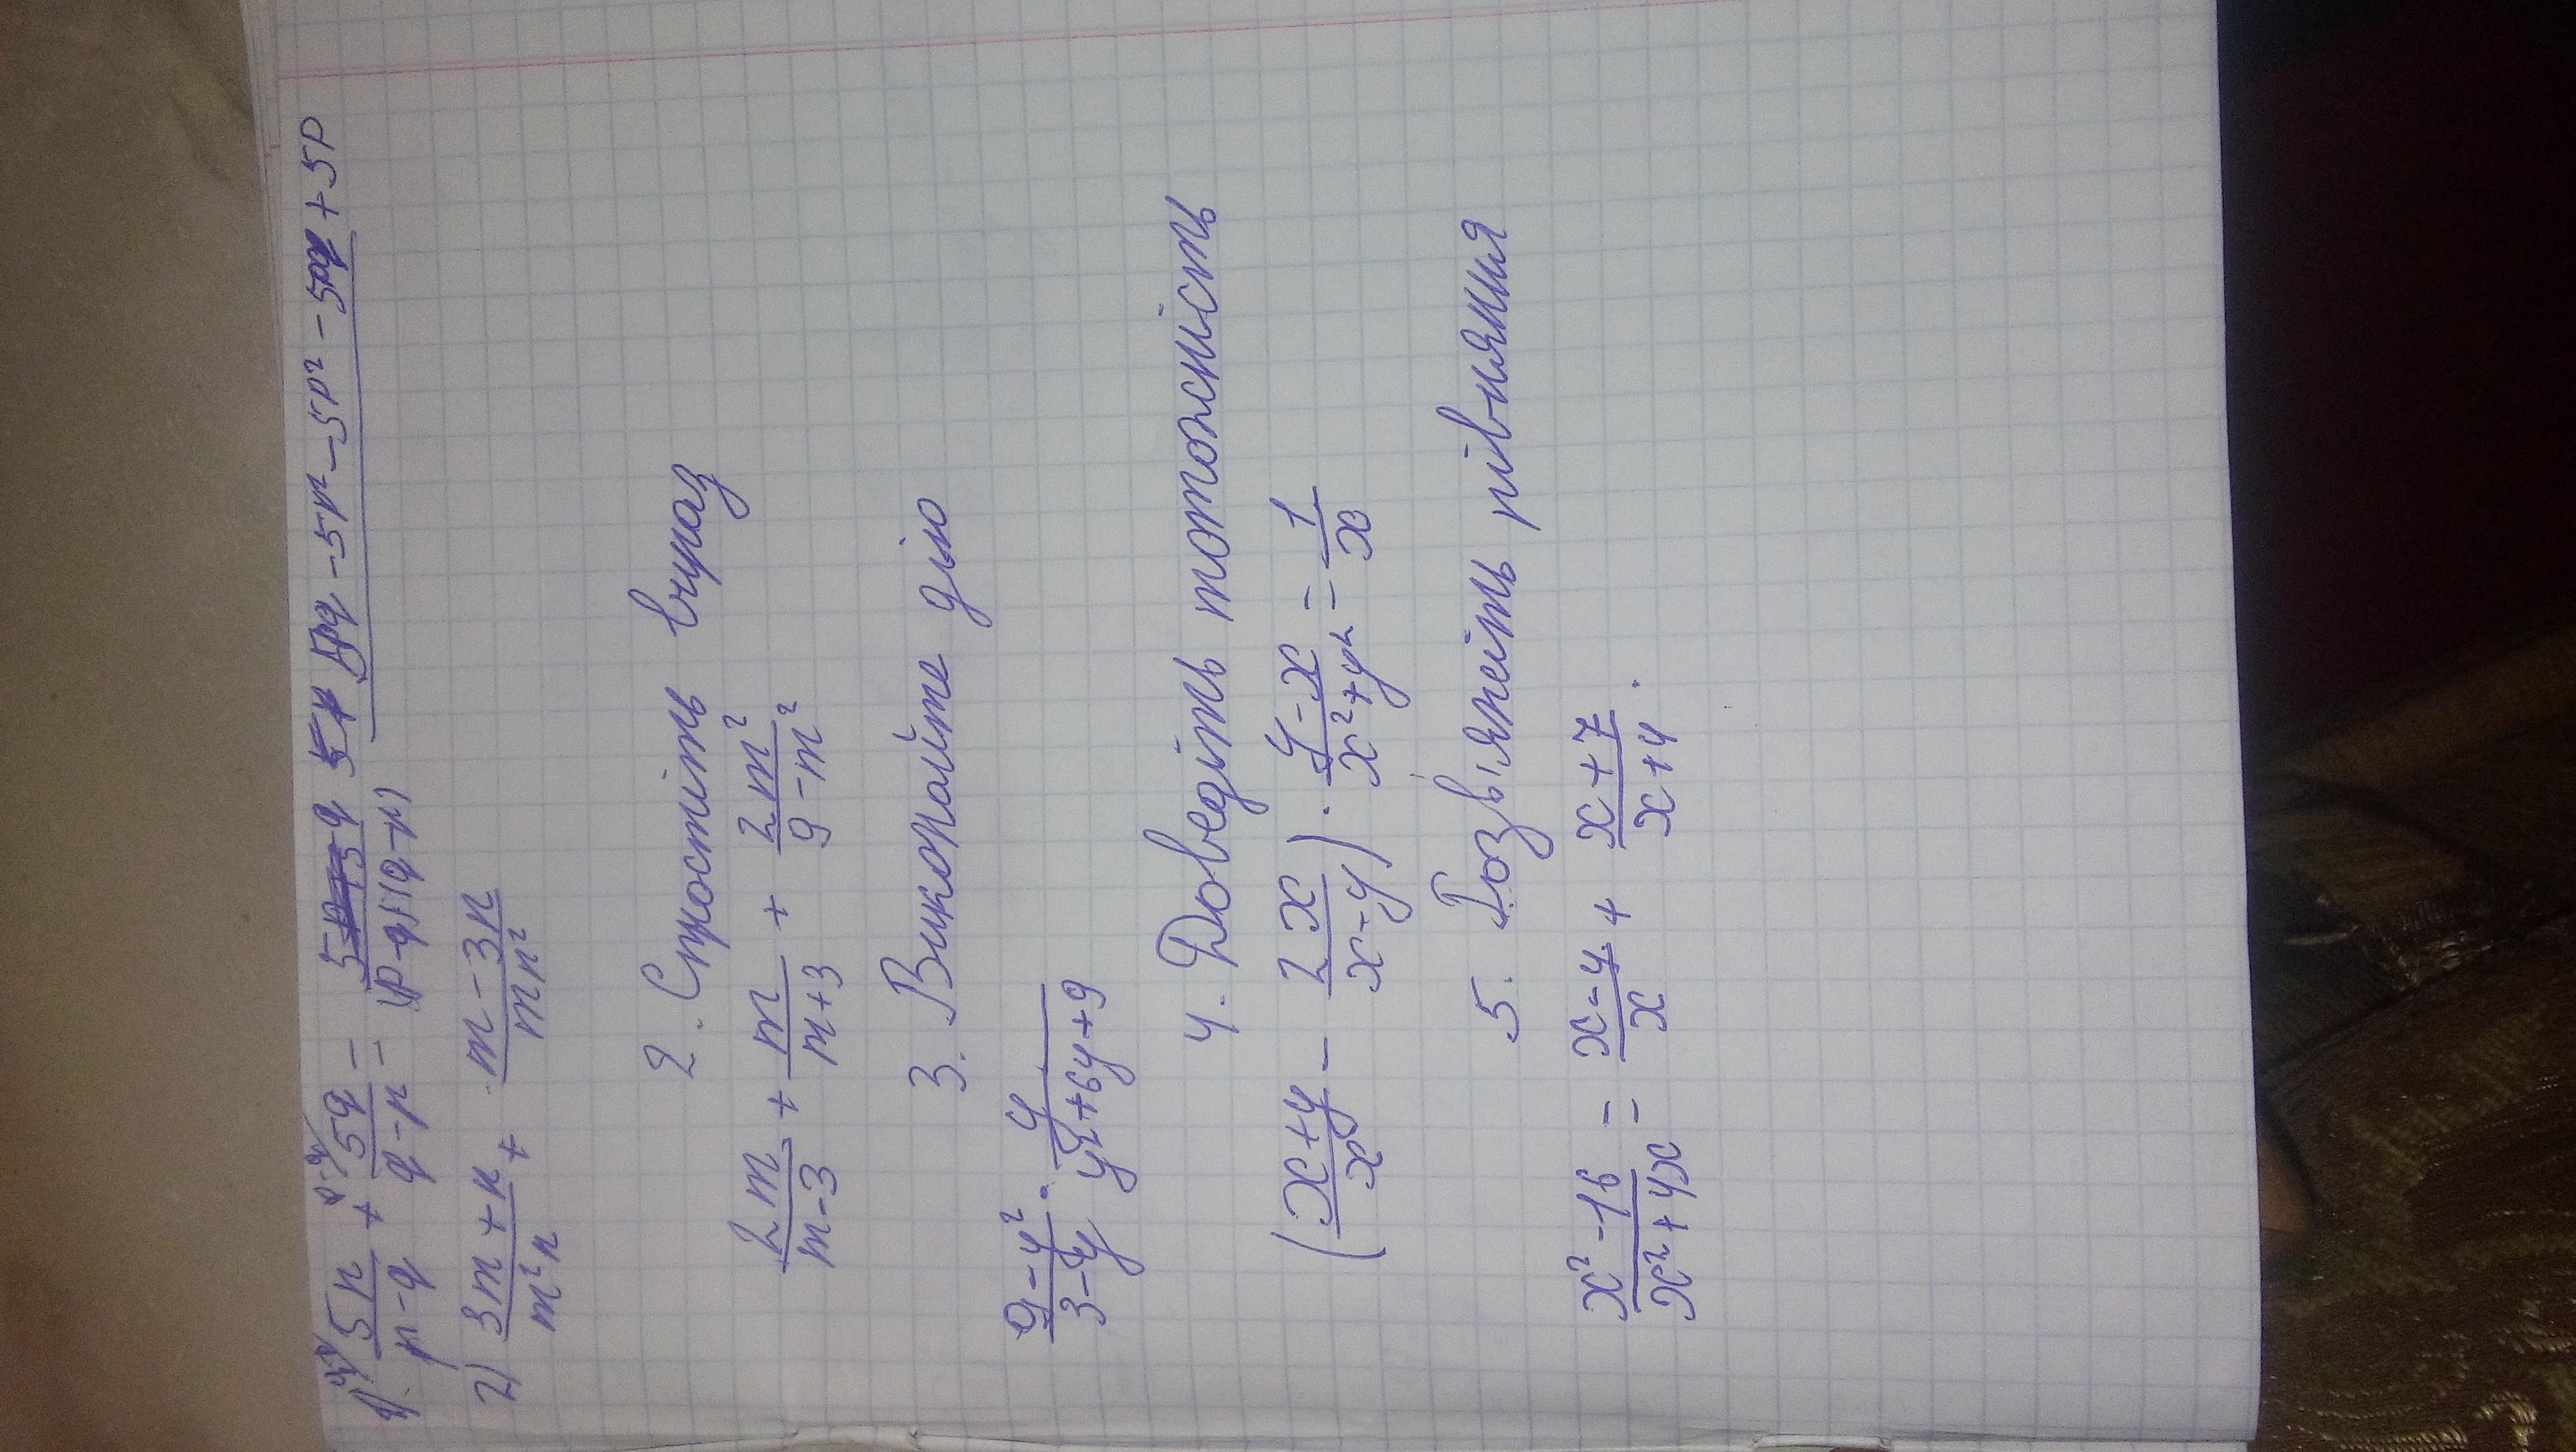 1) 5p/(p-q) + 5q/(q-p) =
2) (3m+n)/(m²n) + (m-3n)/(mn²)
2. Спростіть вираз
2m/(m-3) + m/(m+3) + 2m²/(9-m²)
3. Виконайте дію
(9-y²)/(3-y) · y/(y²+6y+9)
4. Доведіть тотожність
((x+y)/x - 2x/(x-y)) · (y-x)/(x²+y²) = 1/x
5. Розв'яжіть рівняння
(x²-16)/(x²+4x) = (x-4)/x + (x+7)/(x+4).